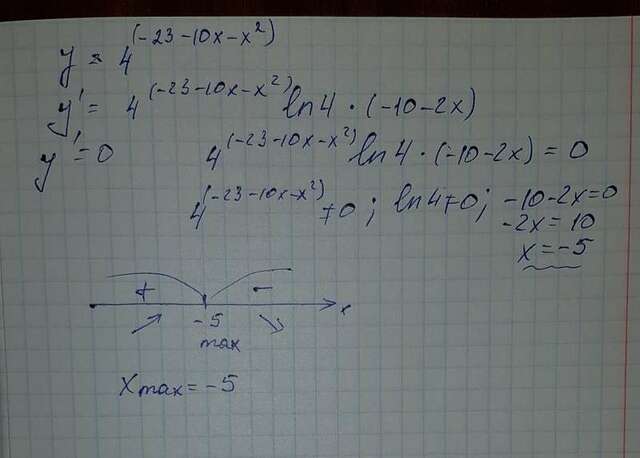 y = 4^(-23-10x-x²)
y' = 4^(-23-10x-x²) ln4 · (-10-2x)
y' = 0 4^(-23-10x-x²) ln4 · (-10-2x) = 0
4^(-23-10x-x²) ≠0 ; ln4≠0 ; -10-2x=0
-2x = 10
x = -5
+ -
-5 x
max
Xmax = -5